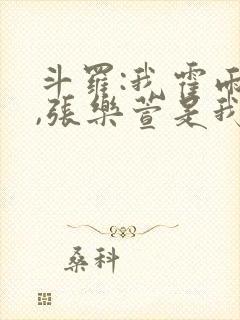 斗羅:我霍雨
,張樂萱是我
桑科